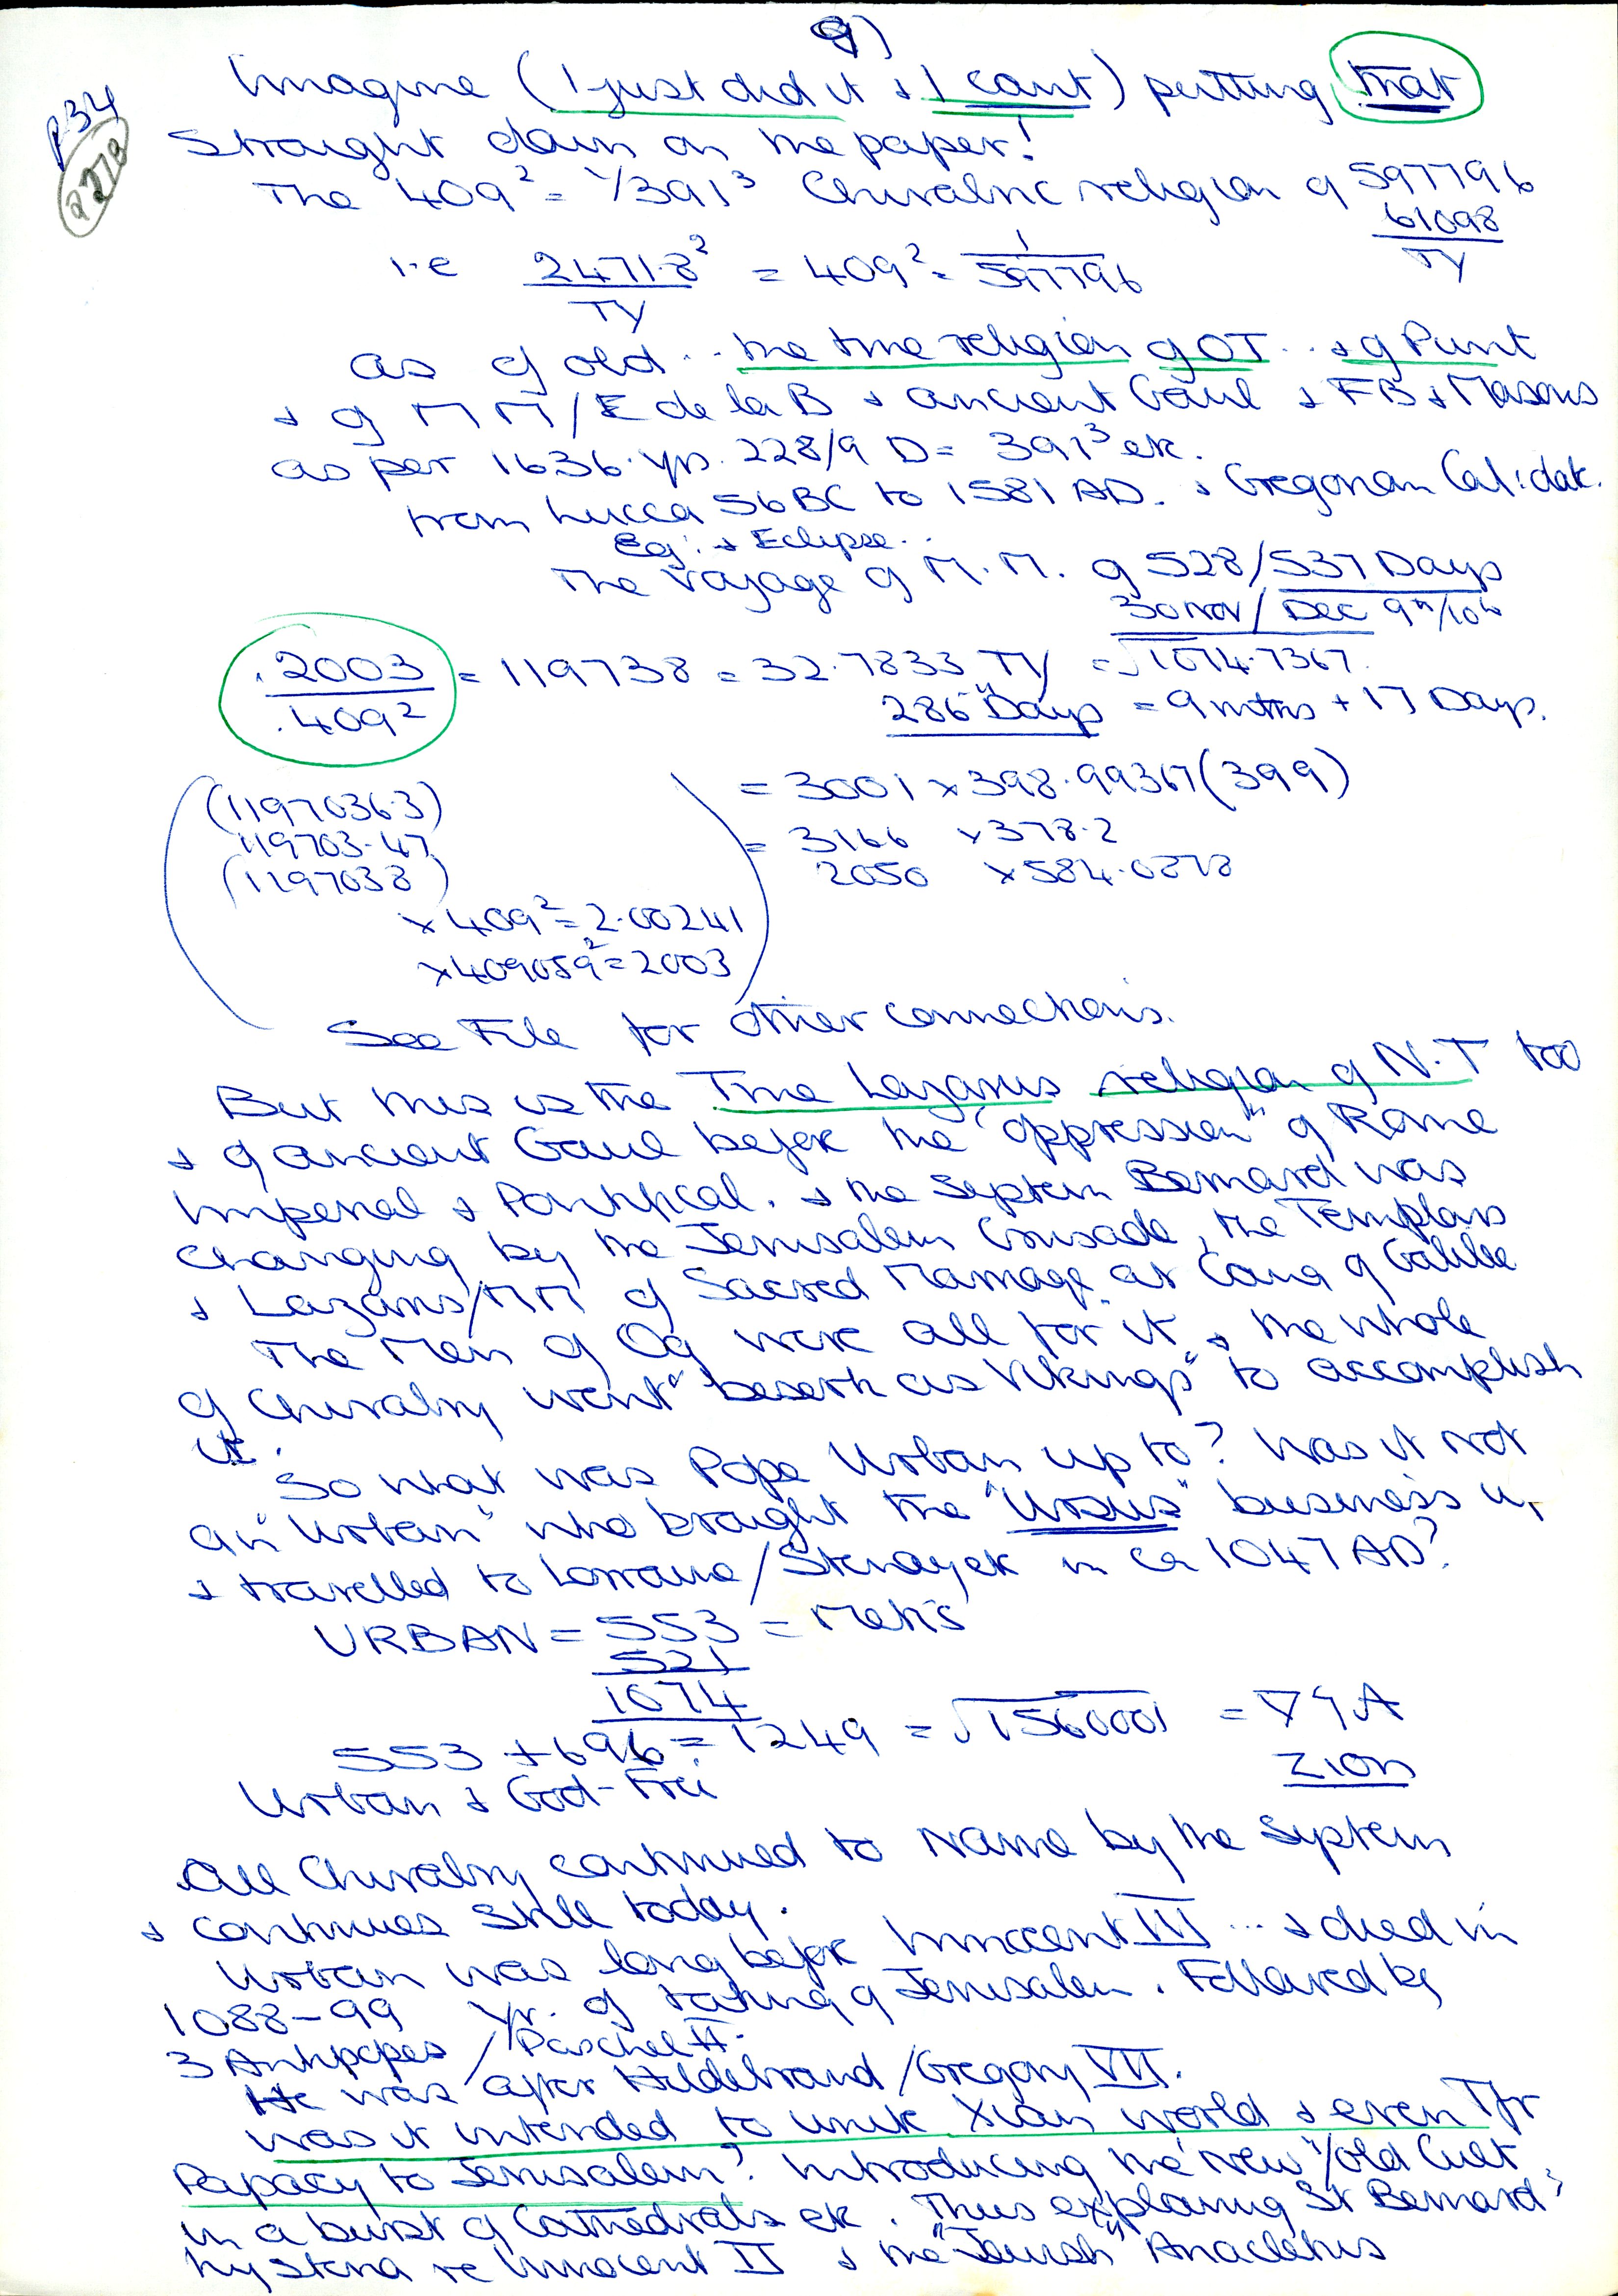 9)
P34
2278
Imagine (I just did it & I cant) putting that
straight down on the paper!
The 409² = 1/391³ Chivalric religion of 597796
61098
TY
i.e 2471.8² = 409² = 1
TY 597796
as of old .. the true religion of OT .. & of Punt
& of MM/E de la B & ancient Gaul & FB & Masons
as per 1636 yrs. 228/9 D = 391³ etc.
from Lucca 56 BC to 1581 AD. & Gregorian Cal: date.
Eg: & Eclipse..
The Voyage of M.M. of 528/537 Days
30 Nov / Dec 9th/10th
.2003 = 119738 = 32.7833 TY = √1074.7367
.409²
286 "Days" = 9 mths + 17 Days.
(1197036.3) = 3001 x 398.99367 (399)
119703.47 = 3166 x 378.2
(1197038) 2050 x 584.0878
x 409² = 2.00241
x 409059² = 2003
See File for other connections.
But this is the True Lazarus religion of N.T too
& of ancient Gaul before the "oppression" of Rome
Imperial & Pontifical. & the System Bernard was
changing by the Jerusalem Crusade, the Templars
& Lazarus/MM of Sacred Marriage at Cana of Galilee
The Men of Og were all for it & the whole
of Chivalry went "beserk as Vikings" to accomplish
it.
So what was Pope Urban up to? Was it not
an "Urban" who brought the "Ursus" business up
& travelled to Lorraine/Stenay etc in ca 1047 AD?
URBAN = 553 = Metis
521
1074
553 + 696 = 1249 = √1560001 =
Zion
Urban & God-Frei
All Chivalry continued to Name by the System
& continues still today.
Urban was long before Innocent III ... & died in
1088-99 Yr. of taking of Jerusalem. Followed by
3 Antipopes / Paschel II.
He was after Hildebrand/Gregory VII.
was it intended to unite Xian world & even Tfr
Papacy to Jerusalem? Introducing the "new"/old Cult
in a burst of Cathedrals etc. Thus explaining St Bernard's
hysteria re Innocent II & the "Jewish" Anacletus